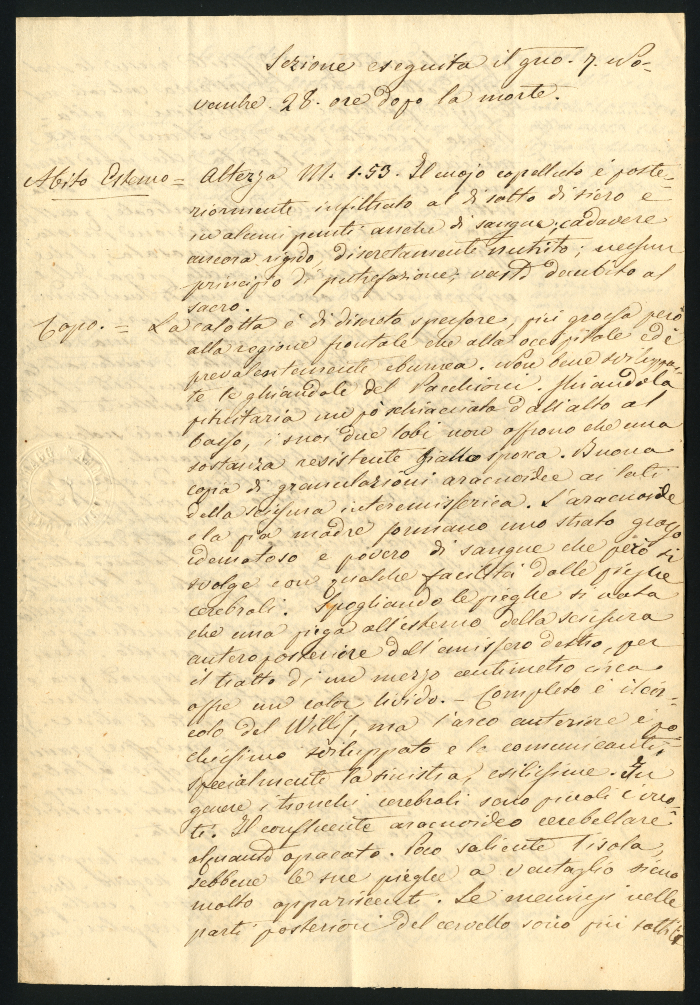 Sezione eseguita il gno. 7. No-
vembre. 28. ore dopo la morte.
Abito Esterno = Altezza M. 1.53. Il cuojo capelluto é poste-
riormente infiltrato al di sotto di siero e
in alcuni punti anche di sangue; cadavere
ancora rigido, discretamente nutrito; nessun
principio di putrefazione; vasto decubito al
sacro.
Capo. = La calotta é di discreto spessore, piú grossa però
alla regione frontale che alla occipitale ed é
prevalentemente eburnea. Non bene sviluppa-
te le ghiandole del Pacchioni. Ghiandola
pituitaria un pó schiacciata dall'alto al
basso, i suoi due lobi non offrono che una
sostanza resistente giallo sporca. Buona
copia di granulazioni aracnoidee ai lati
della scissura interemisferica. L'aracnoide
e la pia madre formano uno strato grosso
edematoso e povero di sangue che però si
svolge con qualche facilitá dalle pieghe
cerebrali. Spogliando le pieghe si nota
che una piega all'esterno della scissura
antero posteriore dell'emisfero destro, per
il tratto di un mezzo centimetro circa
offre un color livido. - Completo é il cir-
colo del Willis, ma l'arco anteriore é po-
chissimo sviluppato e le comunicanti,
specialmente la sinistra, esilissime. In
genere i tronchi cerebrali sono piccoli e vuo-
ti. Il confluente aracnoideo cerebellare
alquanto opacato. Poco saliente l'isola,
sebbene le sue pieghe a ventaglio siano
molto appariscenti. Le meningi nelle
parti posteriori del cervello sono piú sottili